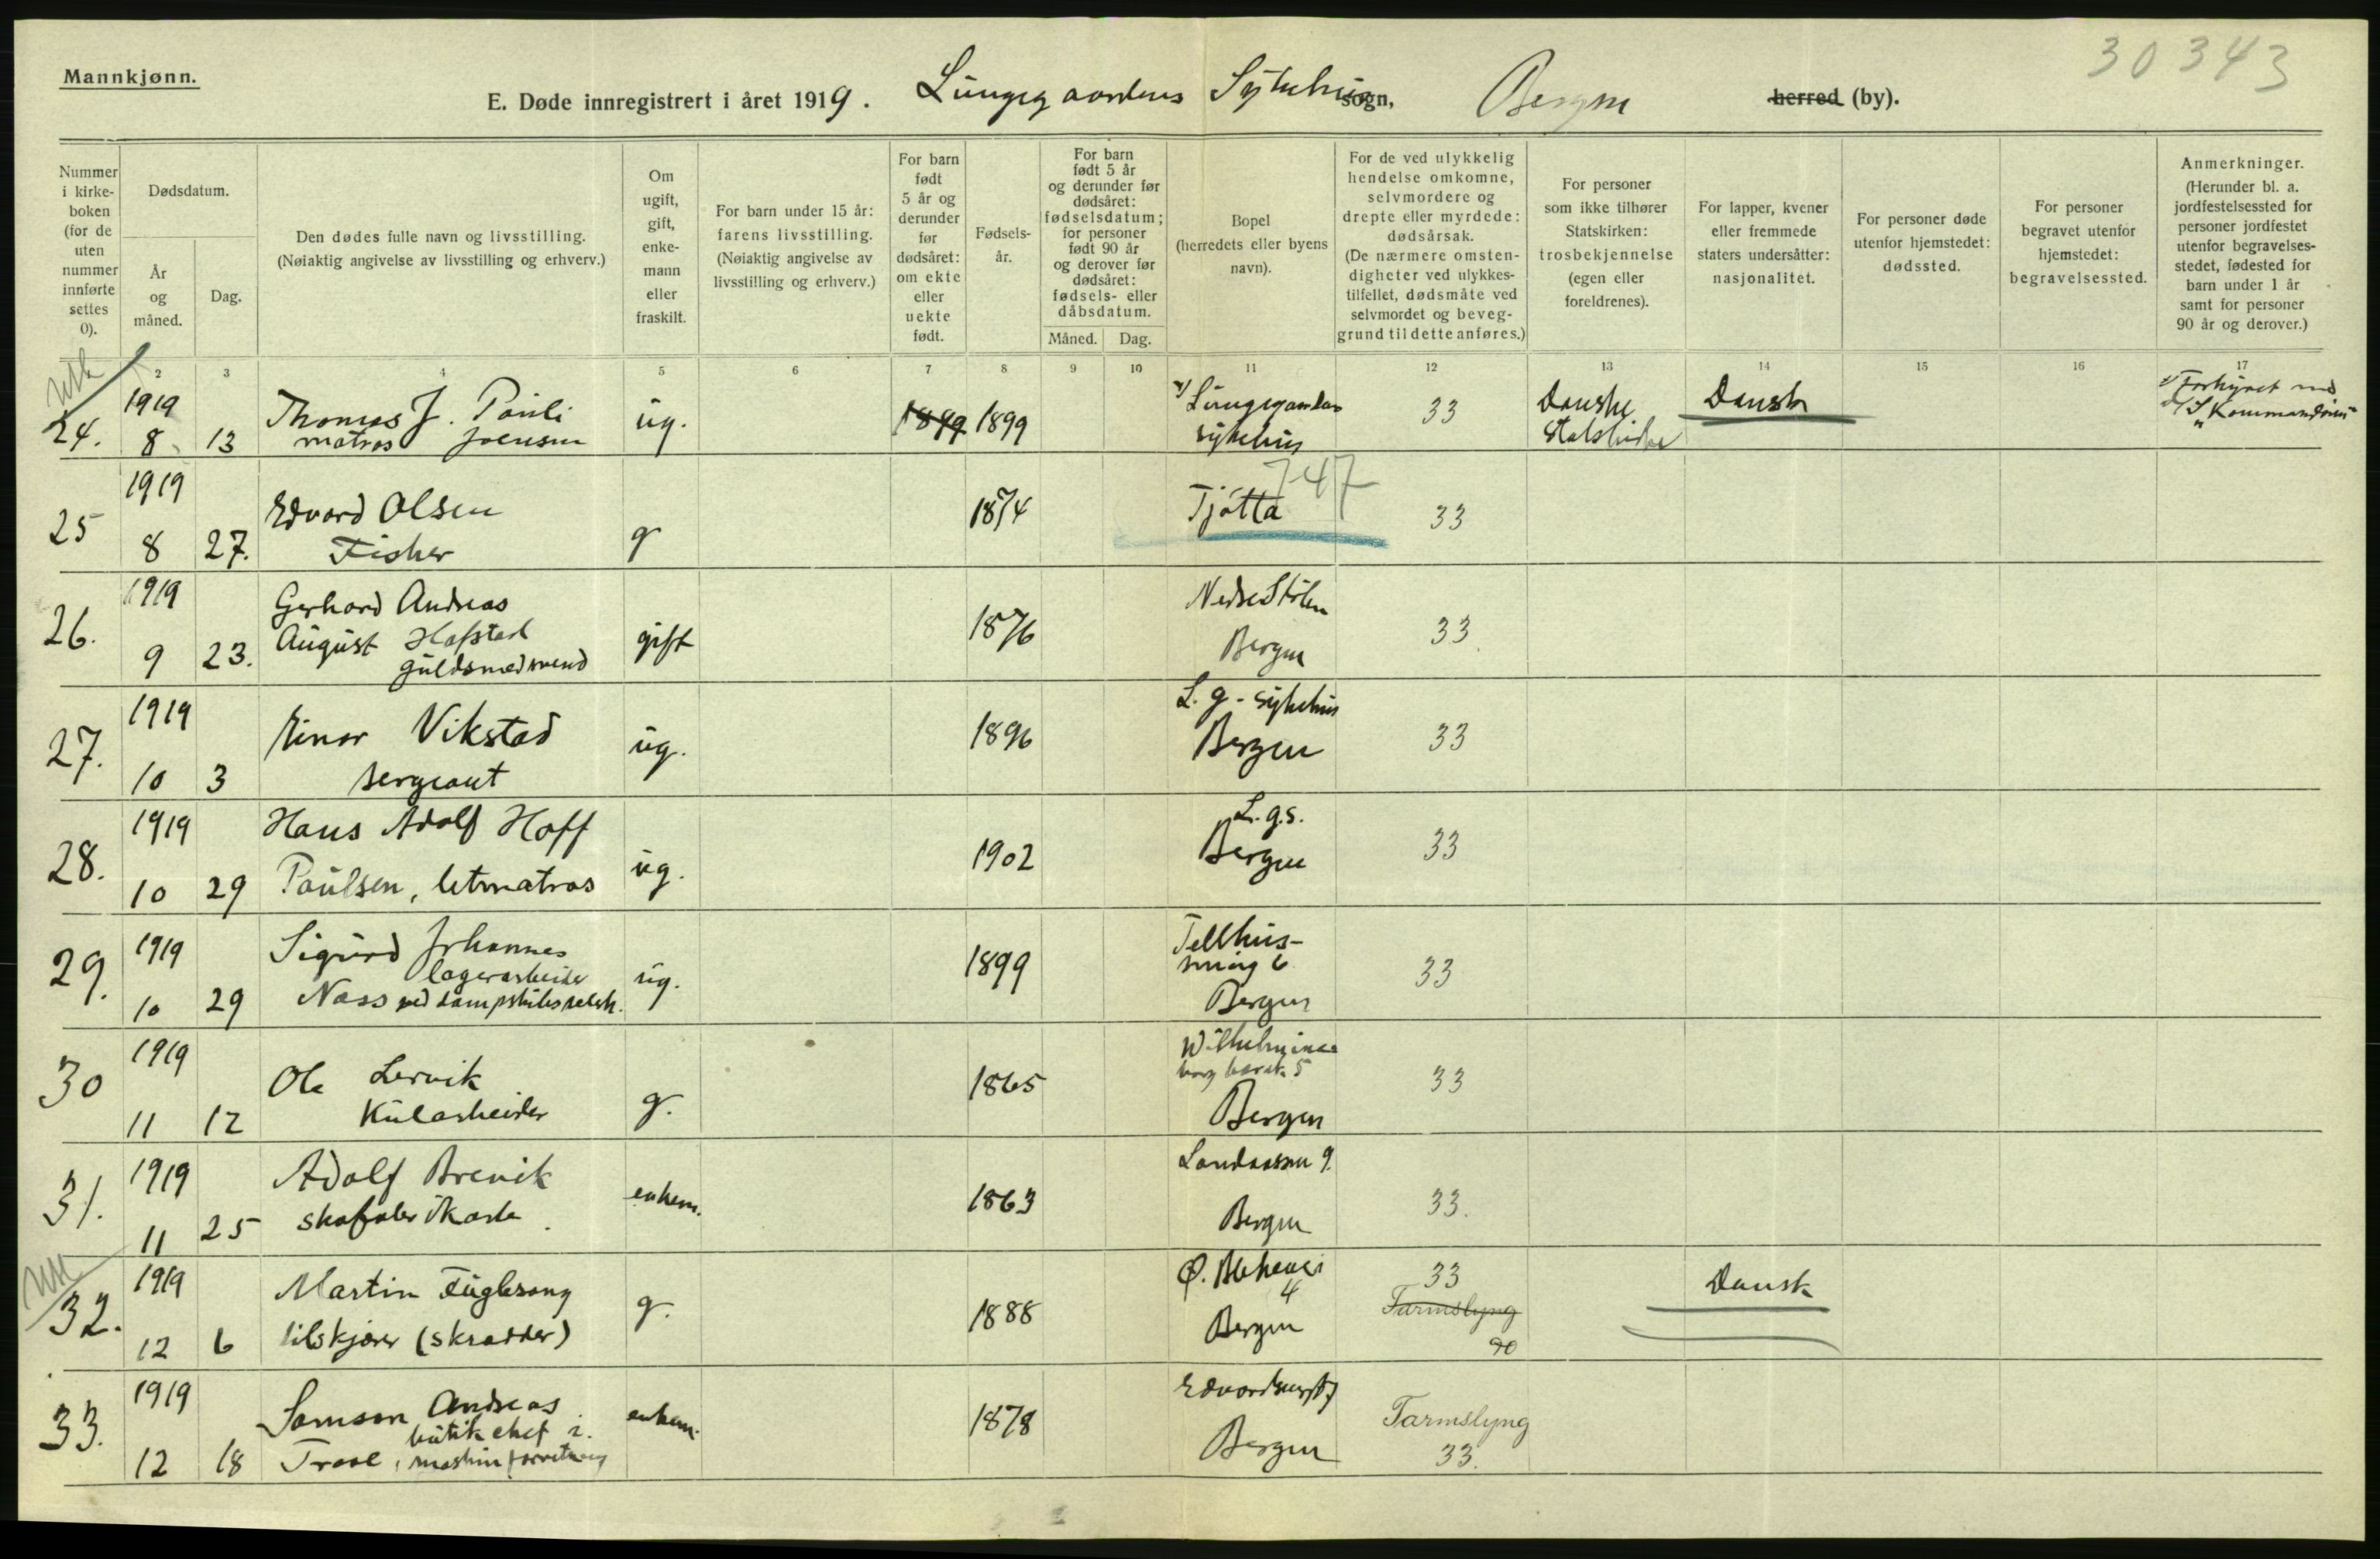 30343
Mannkjønn.
E. Døde innregistrert i året 1919. Lungegaardens Sykehus sogn, Bergen herred (by).
Nummer i kirkeboken (for de uten nummer innførte settes 0).
Dødsdatum.
År og måned.
Dag.
Den dødes fulle navn og livsstilling.
(Nøiaktig angivelse av livsstilling og erhverv.)
Om ugift, gift, enkemann eller fraskilt.
For barn under 15 år: farens livsstilling.
(Nøiaktig angivelse av livsstilling og erhverv.)
For barn født 5 år og derunder før dødsåret: om ekte eller uekte født.
Fødselsår.
For barn født 5 år og derunder før dødsåret: fødselsdatum; for personer født 90 år og derover før dødsåret: fødsels- eller dåbsdatum.
Måned. Dag.
Bopel
(herredets eller byens navn).
For de ved ulykkelig hendelse omkomne, selvmordere og drepte eller myrdede: dødsårsak.
(De nærmere omstendigheter ved ulykkestilfellet, dødsmåte ved selvmordet og beveggrund til dette anføres.)
For personer som ikke tilhører Statskirken: trosbekjennelse (egen eller foreldrenes).
For lapper, kvener eller fremmede staters undersåtter: nasjonalitet.
For personer døde utenfor hjemstedet: dødssted.
For personer begravet utenfor hjemstedet: begravelsessted.
Anmerkninger.
(Herunder bl. a. jordfestelsessted for personer jordfestet utenfor begravelsesstedet, fødested for barn under 1 år samt for personer 90 år og derover.)
2 3 4 5 6 7 8 9 10 11 12 13 14 15 16 17
24. 1919 8 13 Thomas J. Pauli Joensen matros ug. 1899 1899 Lungegaardens sykehus 33 Danske Statskirke Dansk Forhyret med D/S "Kommandøren"
25 1919 8 27. Edvard Olsen Fisker g 1874 Tjøtta 747 33
26. 1919 9 23. Gerhard Andreas August Hafstad guldsmedsvend gift 1876 Nedre Stølen Bergen 33
27. 1919 10 3 Einar Vikstad sergeant ug. 1896 L. g. sykehus Bergen 33
28. 1919 10 29 Hans Adolf Hoff Paulsen, letmatros ug. 1902 L.g.s. Bergen 33
29. 1919 10 29 Sigurd Johannes Næss lagerarbeider ved dampskibsselsk. ug. 1899 6 Bergen 33
30 1919 11 12 Ole Lervik Kularbeider g. 1865 5 Bergen 33
31. 1919 11 25 Adolf Brevik enkem. 1863 Landaasen 9. Bergen 33.
32. 1919 12 6 Martin Fuglesang tilskjærer (skrædder) g. 1888 Ø. Blekevei 4 Bergen 33 Tarmslyng 90 Dansk
33. 1919 12 18 Samson Andreas Traae, butikchef i maskinforretning enkem. 1878 Bergen Tarmslyng 33.